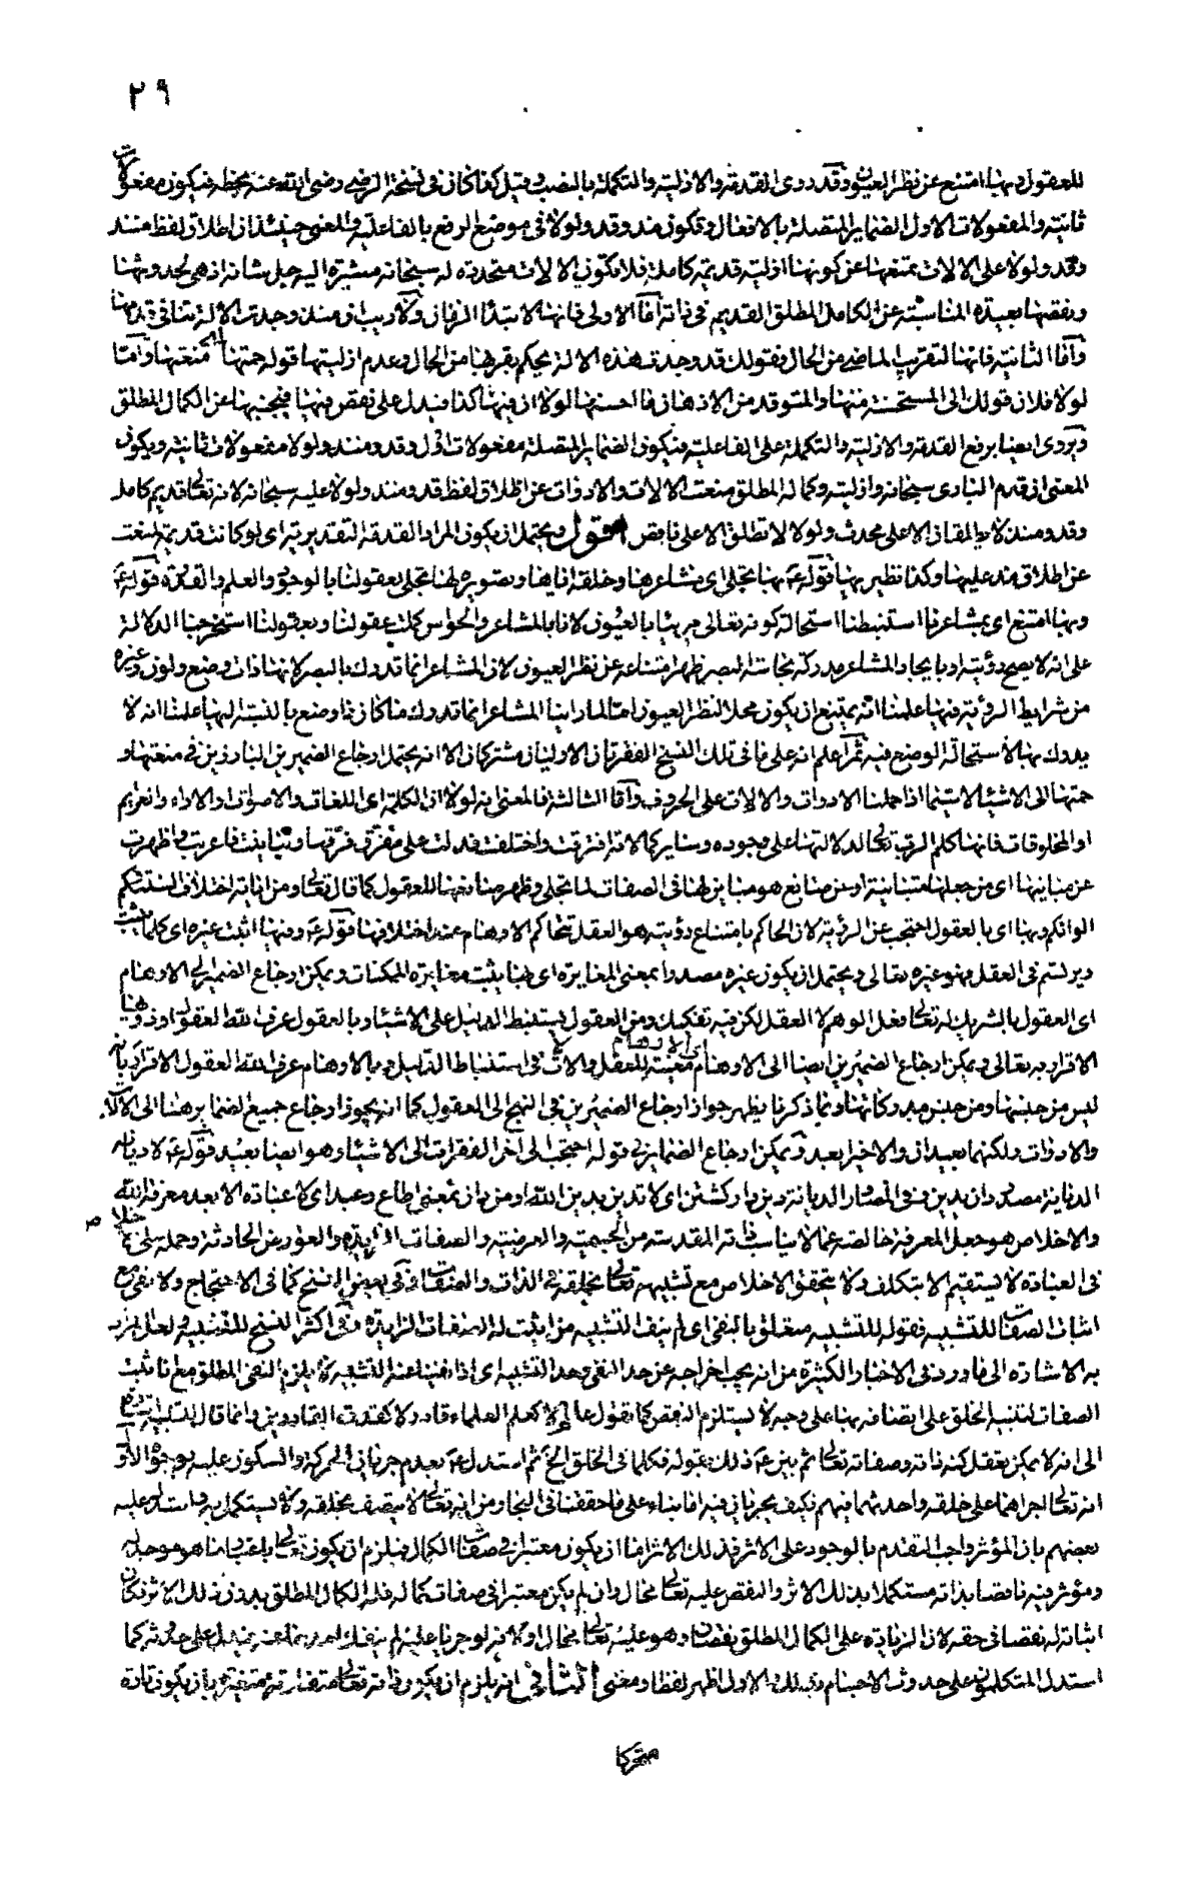 ٢٩
للعقول وبها امتنع عن نظر العيون وقد روى القدمة والازلية والتكملة بالنصب وقيل كذا كان في نسخة الرضي رضي الله عنه بخطه فيكون مفعولات
ثانية والمفعولات الاول الضماير المتصلة بالافعال وتكون منذ وقد ولولا في موضع الرفع بالفاعلية والمعنى حينئذ ان اطلاق لفظ منذ
وقد ولولا على الالات تمنعها عن كونها ازلية قديمة كاملة فلا تكون الالات متحددة له سبحانه مشيرة اليه جل شانه اذ هي لحدوثها
ونقصها بعيدة المناسبة عن الكامل المطلق القديم في ذاته اما الاولى فانها لابتداء الزمان ولا ريب ان منذ وجدت الالة تنافي قدمها
واما الثانية فانها لتقريب الماضي من الحال فقولك قد وجدت هذه الالة يحكم بقربها من الحال وعدم ازليتها قوله حمتها اي منعتها واما
لولا فلان قولك الى المستحسنة منها والمتوقد من الاذهان ما احسنها لولا ان فيها كذا فيدل على نقص فيها فيجنبها عن الكمال المطلق
ويروى ايضا برفع القدمة والازلية والتكملة على الفاعلية فيكون الضماير المتصلة مفعولات اول وقد ومنذ ولولا مفعولات ثانية ويكون
المعنى ان قدم الباري سبحانه وازليته وكماله المطلق منعت الالات والادوات عن اطلاق لفظ قد ومنذ ولولا عليه سبحانه لانه تعالى قديم كامل
وقد ومنذ لا يطلقان الا على محدث ولولا لا تطلق الا على ناقص اقول ويحتمل ان يكون المراد القدمة التقديرية اي لو كانت قديمة لمنعت
عن اطلاق منذ عليها وكذا نظيريها قوله ع بها تجلى اي بمشاعرها وخلقه اياها وتصويره لها تجلى لعقولنا بالوجود والعلم والقدرة قوله ع
وبها امتنع اي بمشاعرنا استنبطنا استحالة كونه تعالى مرئيا بالعيون لانا بالمشاعر والحواس كملت عقولنا وبعقولنا استخرجنا الدلالة
على انه لا يصح رؤيته او بايجاد المشاعر مدركة بحاسة البصر ظهر امتناعه عن نظر العيون لان المشاعر انما تدرك بالبصر لانها ذات وضع ولون وغيره
من شرايط الرؤية فبها علمنا انه يمتنع ان يكون محلا لنظر العيون اما لما راينا المشاعر انما تدرك ما كان ذا وضع بالنسبة اليها علمنا انه لا
يدرك بها لاستحالة الوضع فيه ثم اعلم انه على ما في تلك النسخ الفقرتان الاوليان مشتركتان الا انه يحتمل ارجاع الضميرين البارزين في منعتها و
حمتها الى الاشياء لا سيما اذا حملنا الادوات والالات على الحروف واما الثالثة فالمعنى انه لولا ان الكلمة اي اللغات والاصوات والاراء والعزايم
او المخلوقات فانها كلم الرب تعالى لدلالتها على وجوده وساير كمالاته افترقت واختلفت فدلت على مفرق فرقها وتباينت فاعربت واظهرت
عن مباينها اي من جعلها متباينة او عن صانع هو مباين لها في الصفات لما تجلى وظهر صانعها للعقول كما قال تعالى ومن اياته اختلاف السنتكم
والوانكم وبها اي بالعقول احتجب عن الرؤية لان الحاكم بامتناع رؤيته هو العقل تحاكم الاوهام عند اختلافها قوله ع وفيها اثبت غيره اي كل ما يثبت
ويرتسم في العقل فهو غيره تعالى ويحتمل ان يكون غيره مصدرا بمعنى المغايرة اي بها يثبت مغايرة الممكنات ويمكن ارجاع الضمير الى الاوهام
اي العقول بالشريك له تعالى فعل الوهم لا العقل لكن فيه تفكيك ومن العقول يستنبط الدليل على الاشياء وبالعقول عرف الله العقول او ذويها
الاقرار به تعالى ويمكن ارجاع الضميرين ايضا الى الاوهام اي الاوهام معينة للعقل والات في استنباط الدليل وبالاوهام عرف الله العقول الاقرار بانه
ليس من جنسها ومن جنس مدركاتها وبما ذكرنا يظهر جواز ارجاع الضميرين في النهج الى العقول كما انه يجوز ارجاع جميع الضماير هنا الى الالات
والادوات ولكنهما بعيدان والاخير ابعد ويمكن ارجاع الضماير في قوله احتجب الى اخر الفقرات الى الاشياء وهو ايضا بعيد قوله ع لا ديانة
الديانة مصدر دان يدين وفي المصادر الديانة دين دار كشتن اي لا تدين بدين الله او من دان بمعنى اطاع وعبد اي لا عبادة الا بعد معرفة الله
والاخلاص هو جعل المعرفة خالصة عما لا يناسب ذاته المقدسة من الجسمية والعرضية والصفات الزايدة والعوارض الحادثة وحمله على الاخلاص
في العبادة لا يستقيم الا بتكلف ولا يتحقق الاخلاص مع تشبيهه تعالى بخلقه في الذات والصفات وفي بعض النسخ كما في الاحتجاج ولا نفي مع
اثبات الصفات للتشبيه فقوله للتشبيه متعلق بالنفي اي لم ينف التشبيه من اثبت له الصفات الزايدة وفي اكثر النسخ للتشبيه ولعل المراد
به الاشارة الى ما ورد في الاخبار الكثيرة من انه يجب اخراجه عن حد النفي وحد التشبيه اي اذا نفينا عنه التشبيه لا يلزم النفي المطلق مع اثبات
الصفات لتنبيه الخلق على اتصافه بها على وجه لا يستلزم النقص كما تقول عالم لا كعلم العلماء قادر لا كقدرة القادرين وانما قال للتنبيه اشارة
الى انه لا يمكن تعقل كنه ذاته وصفاته تعالى ثم بين ع ذلك بقوله فكلما في الخلق الخ ثم استدل ع بعدم جريان الحركة والسكون عليه بوجوه الاول
انه تعالى اجراهما على خلقه واحدثهما فيهم فكيف يجريان فيه اما بناء على ما حققنا في البحار من انه تعالى لا يتصف بخلقه ولا يستكمل به واستدل عليه
بعضهم بان المؤثر واجب التقدم بالوجود على الاثر فذلك الاثر اما ان يكون معتبرا في صفات الكمال فيلزم ان يكون تعالى باعتبار ما هو موجد له
ومؤثر فيه ناقصا بذاته مستكملا بذلك الاثر والنقص عليه تعالى محال وان لم يكن معتبرا في صفات كماله فله الكمال المطلق بدون ذلك الاثر فكان
اثباته له نقصا في حقه لان الزيادة على الكمال المطلق نقصان وهو عليه تعالى محال او لانه لو جريا عليه لم ينفك احدهما عنه فيدل على حدوثه كما
استدل المتكلمون على حدوث الاجسام بذلك والاول اظهر لفظا ومعنى الثاني انه يلزم ان يكون ذاته تعالى متفاوتة متغيرة بان يكون تارة
متحركا